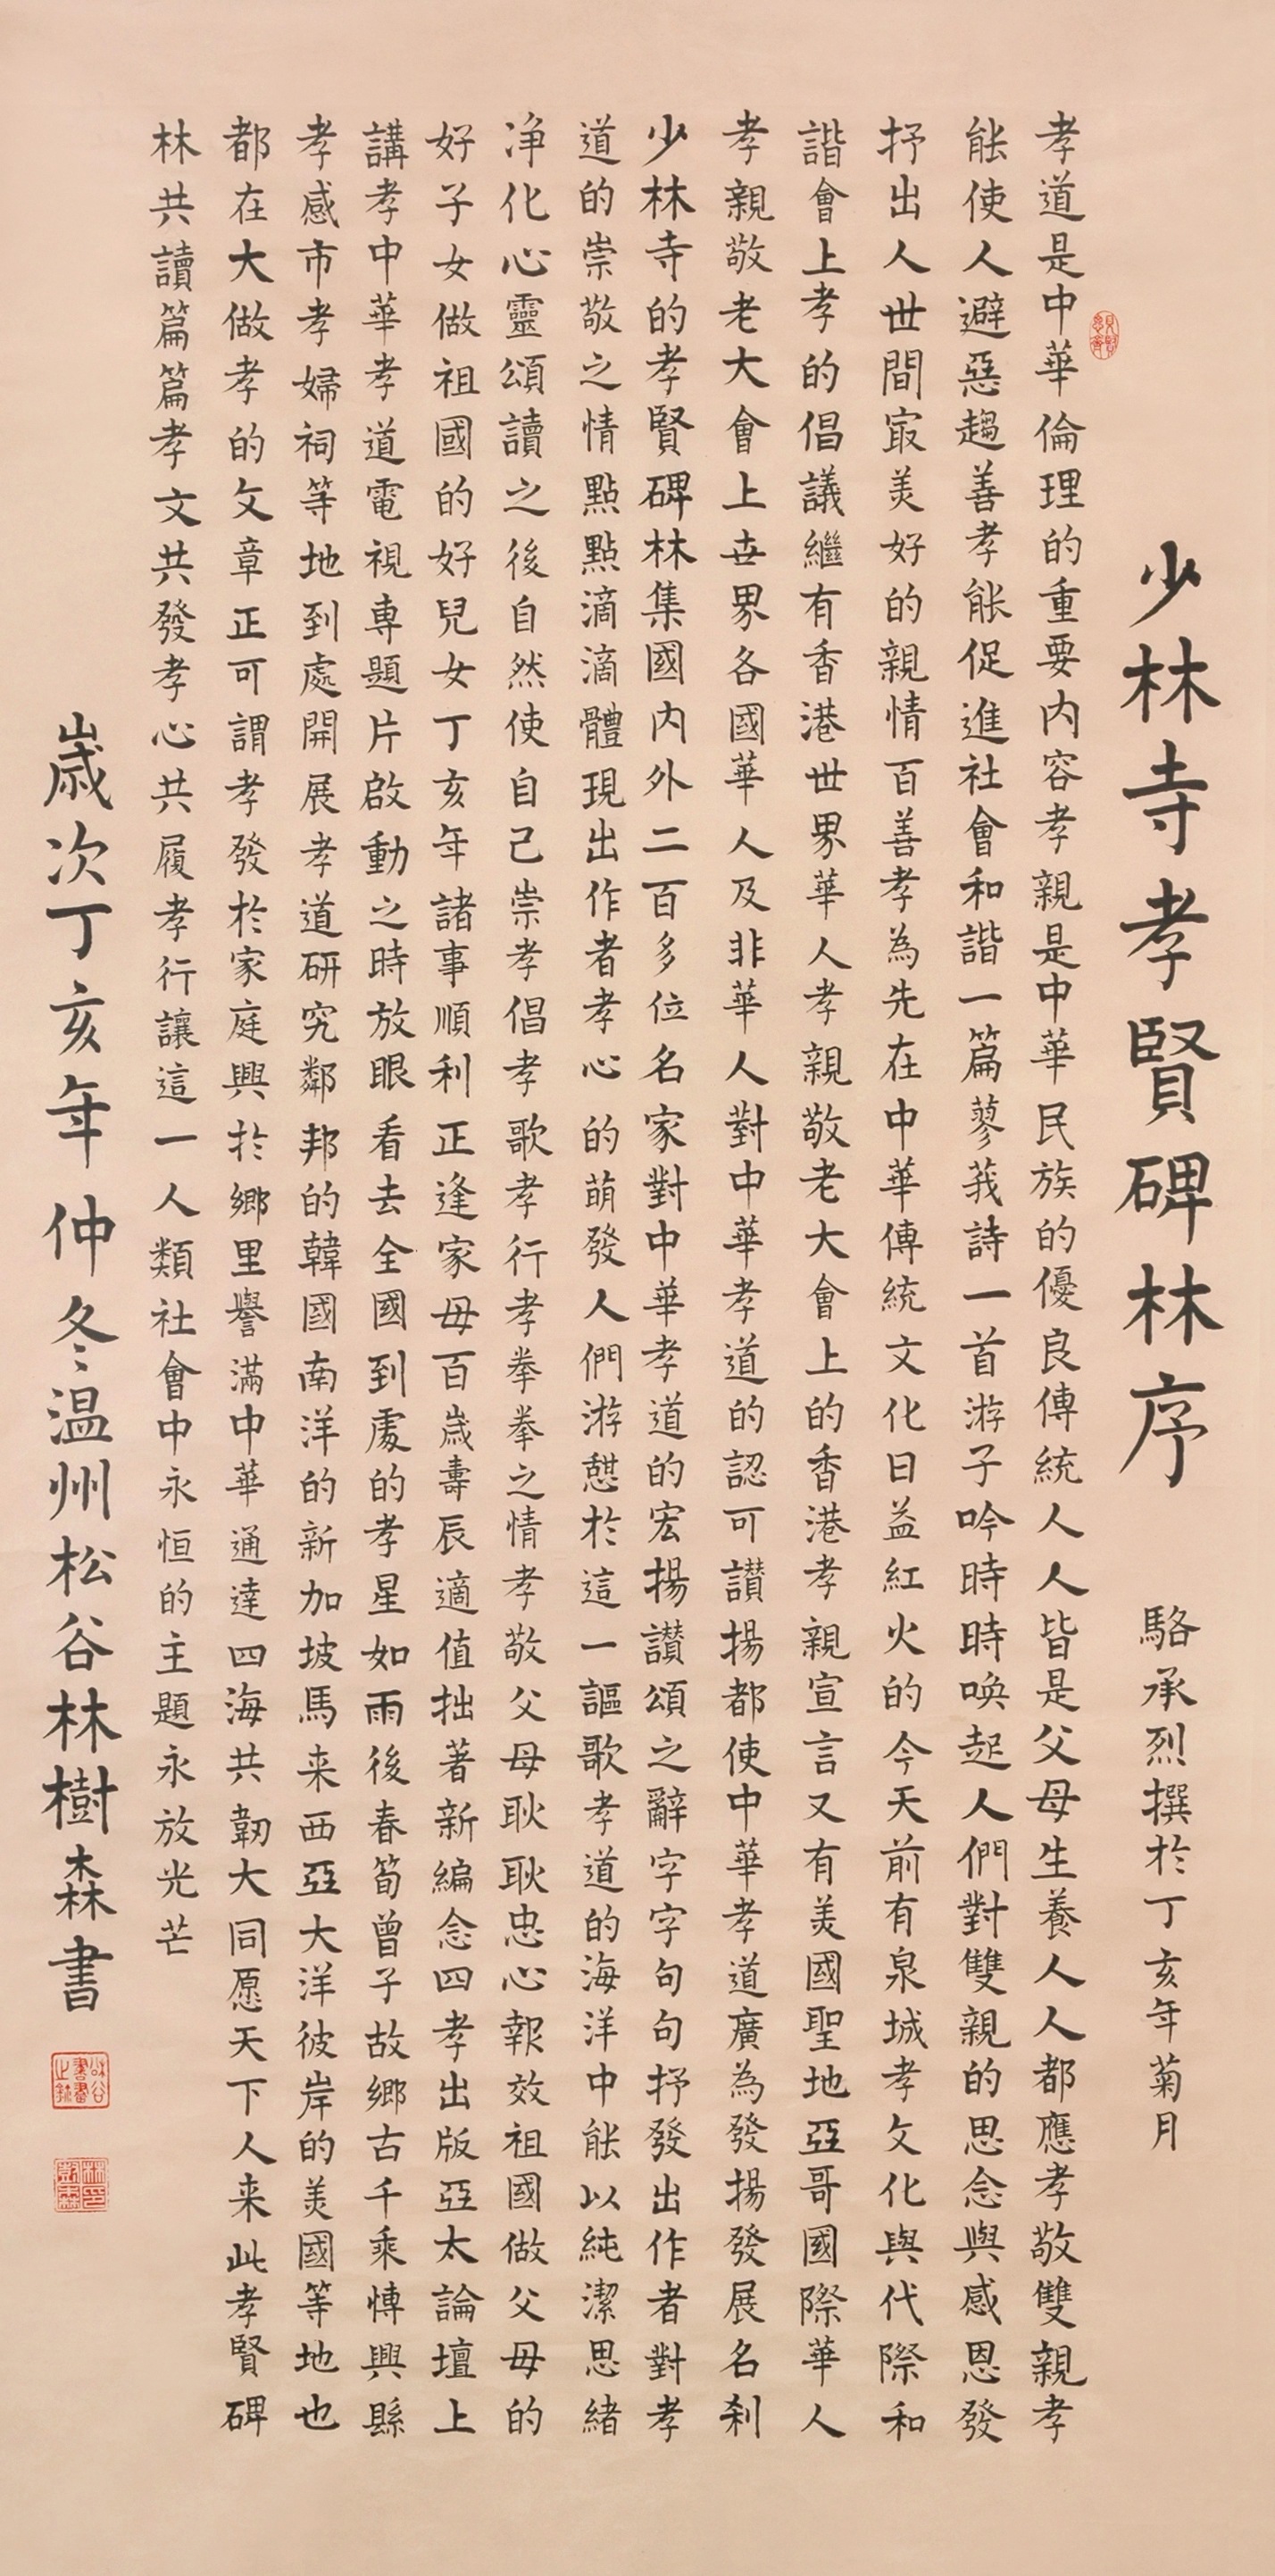 少林寺孝賢碑林序 駱承烈撰於丁亥年菊月
孝道是中華倫理的重要内容孝親是中華民族的優良傳統人人皆是父母生養人人都應孝敬雙親孝
能使人避惡趨善孝能促進社會和諧一篇蓼莪詩一首游子吟時時喚起人們對雙親的思念與感恩發
抒出人世間㝡美好的親情百善孝為先在中華傳統文化日益紅火的今天前有泉城孝文化與代際和
諧會上孝的倡議繼有香港世界華人孝親敬老大會上的香港孝親宣言又有美國聖地亞哥國際華人
孝親敬老大會上世界各國華人及非華人對中華孝道的認可讃揚都使中華孝道廣為發揚發展名刹
少林寺的孝賢碑林集國内外二百多位名家對中華孝道的宏揚讃頌之辭字字句句抒發出作者對孝
道的崇敬之情點點滴滴體現出作者孝心的萌發人們游憇於這一謳歌孝道的海洋中能以純潔思緒
净化心靈頌讀之後自然使自己崇孝倡孝歌孝行孝拳拳之情孝敬父母耿耿忠心報效祖國做父母的
好子女做祖國的好兒女丁亥年諸事順利正逢家母百歲壽辰適值拙著新編念四孝出版亞太論壇上
講孝中華孝道電視專題片啟動之時放眼看去全國到處的孝星如雨後春筍曾子故鄉古千乘博興縣
孝感市孝婦祠等地到處開展孝道研究鄰邦的韓國南洋的新加坡馬来西亞大洋彼岸的美國等地也
都在大做孝的文章正可謂孝發於家庭興於鄉里譽滿中華通達四海共韌大同愿天下人来此孝賢碑
林共讀篇篇孝文共發孝心共履孝行讓這一人類社會中永恒的主題永放光芒
歲次丁亥年仲冬温州松谷林樹森書